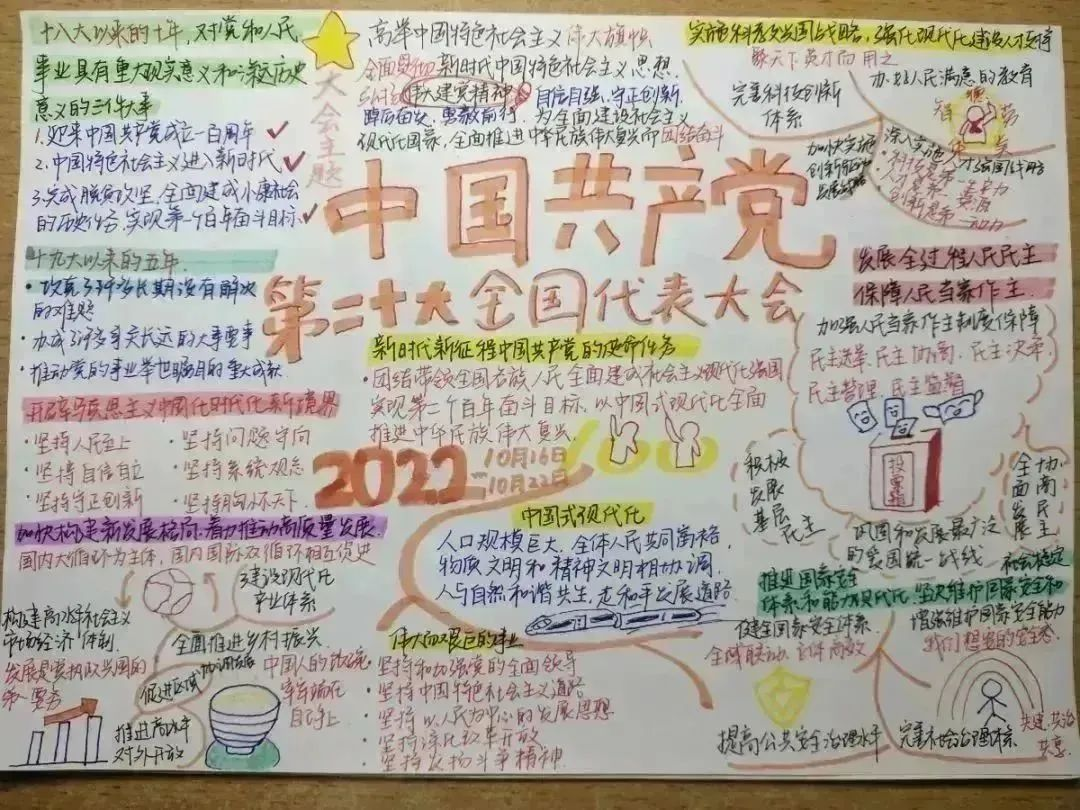 十八大以来的十年，对党和人民
事业具有重大现实意义和深远历史
意义的三件大事
1.迎来中国共产党成立一百周年
2.中国特色社会主义进入新时代
3.完成脱贫攻坚、全面建成小康社会
的历史任务，实现第一个百年奋斗目标
十九大以来的五年
·攻克了许多长期没有解决
的难题
·办成了许多事关长远的大事要事
·推动党的事业举世瞩目的重大成就
开辟马克思主义中国化时代化新境界
·坚持人民至上
·坚持问题导向
·坚持自信自立
·坚持系统观念
·坚持守正创新
·坚持胸怀天下
加快构建新发展格局，着力推动高质量发展
国内大循环为主体，国内国际双循环相互促进
构建高水平社会主义
市场经济体制
建设现代化
产业体系
全面推进乡村振兴
发展是党执政兴国的
第一要务
促进区域
协调发展
中国人的饭碗
牢牢端在
自己手上
推进高水平
对外开放
大会主题
高举中国特色社会主义伟大旗帜
全面贯彻新时代中国特色社会主义思想，
弘扬伟大建党精神，自信自强、守正创新，
踔厉奋发、勇毅前行，为全面建设社会主义
现代化国家、全面推进中华民族伟大复兴而团结奋斗
中国共产党
第二十大全国代表大会
新时代新征程中国共产党的使命任务
·团结带领全国各族人民全面建成社会主义现代化强国
实现第二个百年奋斗目标，以中国式现代化全面
推进中华民族伟大复兴
2022
10月16日
-10月22日
100
中国式现代化
人口规模巨大、全体人民共同富裕，
物质文明和精神文明相协调，
人与自然和谐共生，走和平发展道路
伟大而艰巨的事业
·坚持和加强党的全面领导
·坚持中国特色社会主义道路
·坚持以人民为中心的发展思想
·坚持深化改革开放
·坚持发扬斗争精神
实施科教兴国战略，强化现代化建设人才支撑
聚天下英才而用之
完善科技创新
体系
办好人民满意的教育
德
智
体
美
劳
加快实施
创新驱动
发展战略
深入实施人才强国战略
科技是第一生产力
人才是第一资源
创新是第一动力
发展全过程人民民主
保障人民当家作主
加强人民当家作主制度保障
民主选举、民主协商、民主决策、
民主管理、民主监督
投票箱
积极发展基层民主
全面发展协商民主
巩固和发展最广泛
的爱国统一战线
推进国家安全
体系和能力现代化
坚决维护国家安全和
社会稳定
健全国家安全体系
增强维护国家安全能力
全域联动、立体高效
提高公共安全治理水平
完善社会治理体系
共建、共治
共享